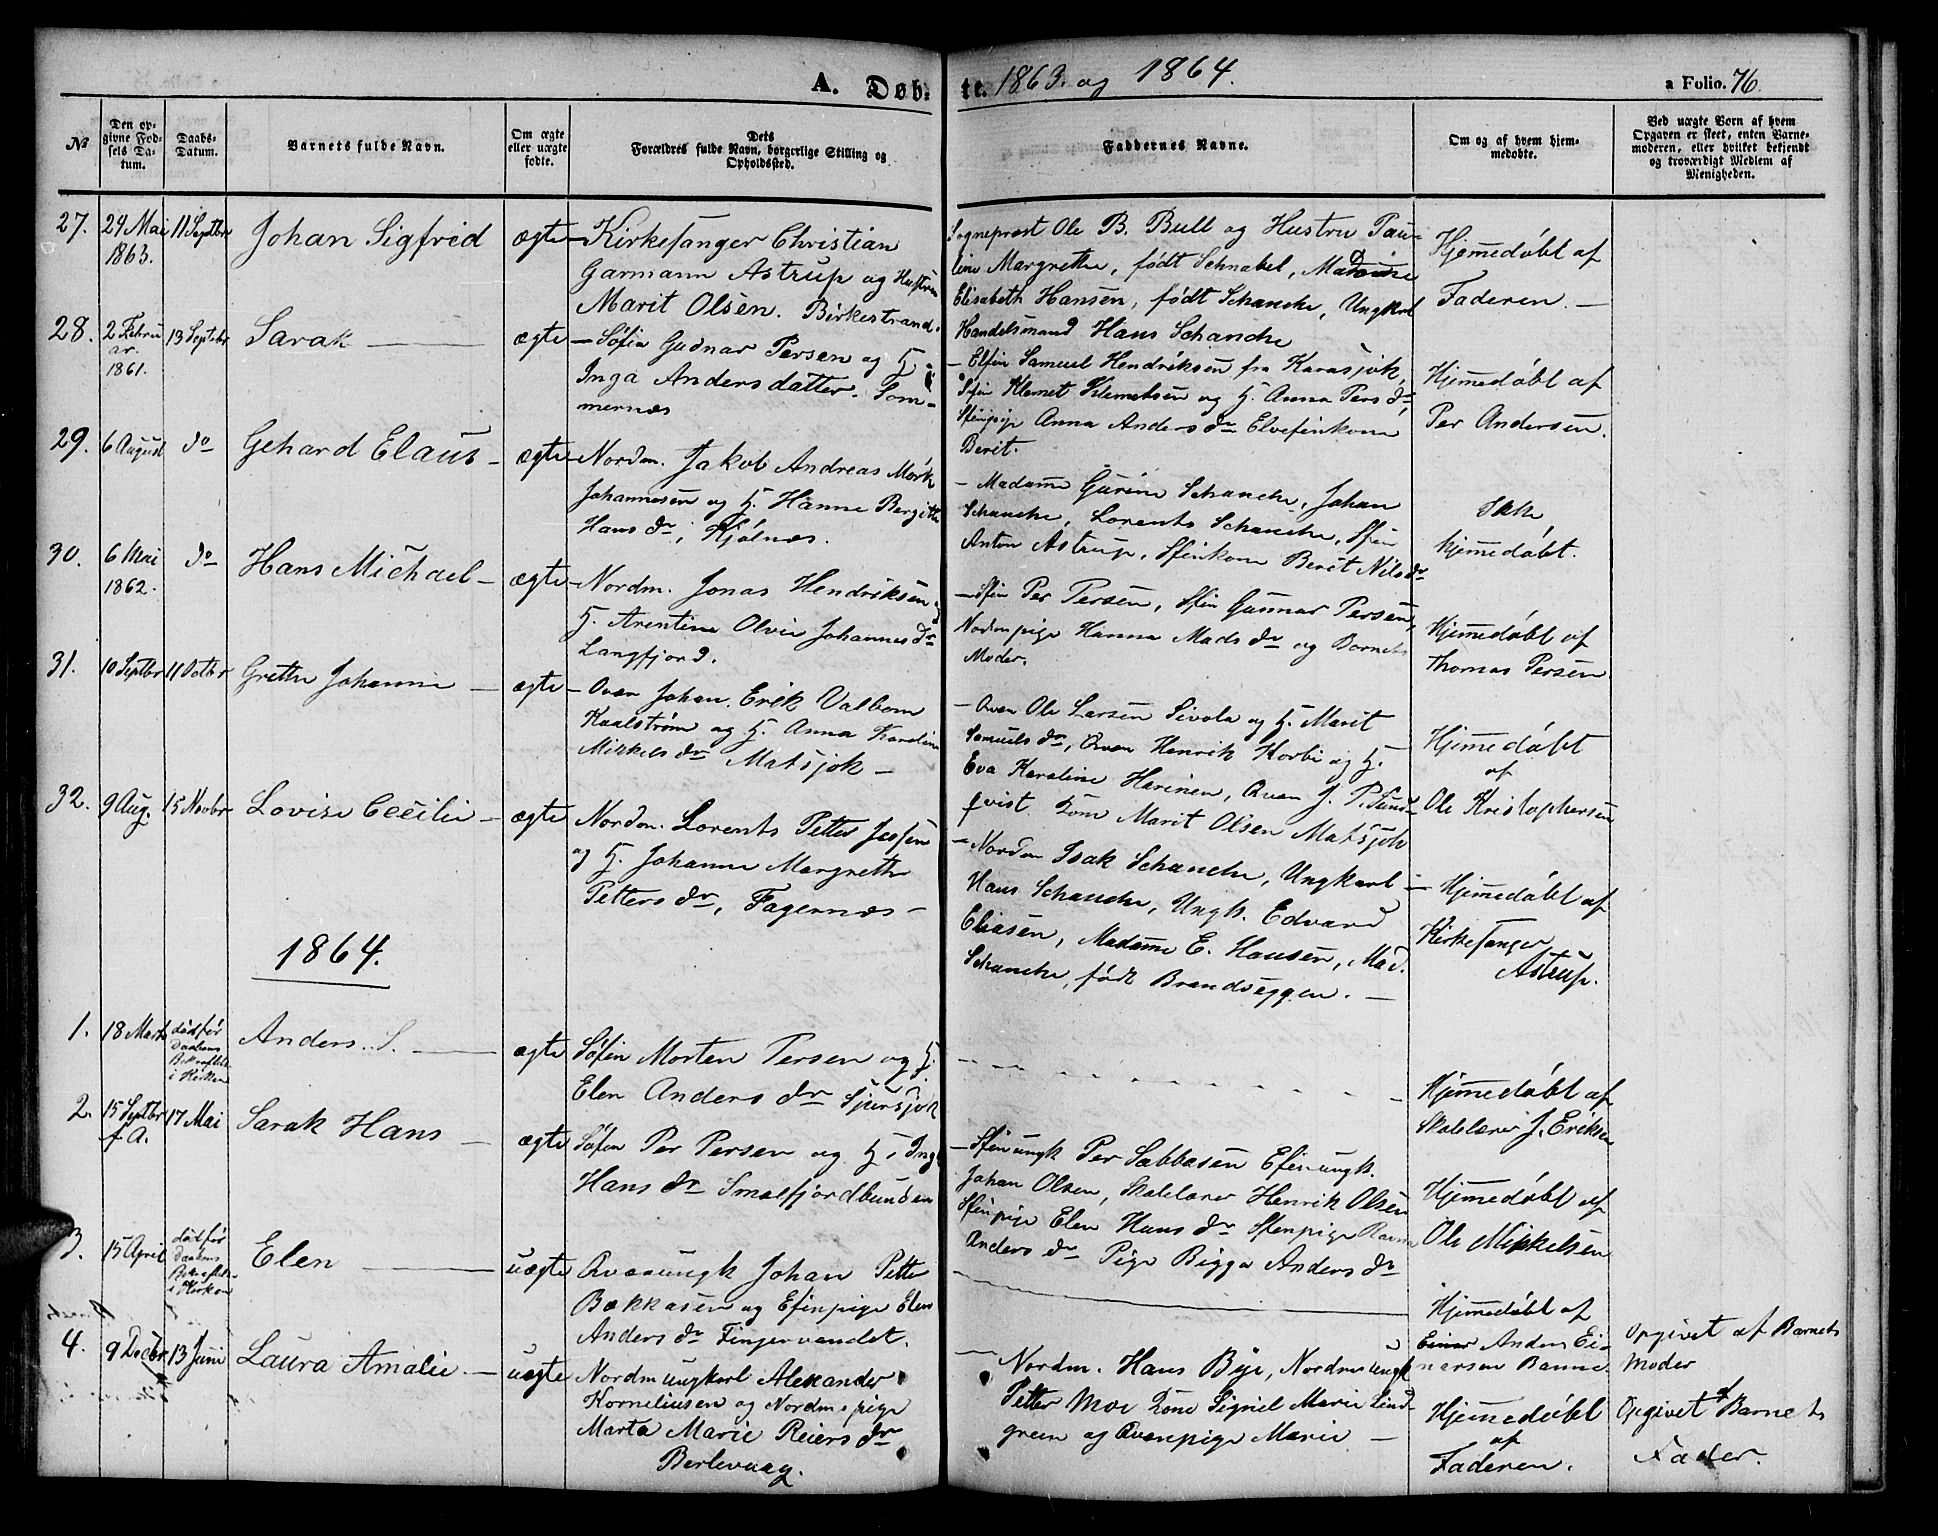 A. Døb-
te. 1863. og 1864.
a Folio. 76.
No
Den op-
givne Fød-
sels Da-
tum.
Daabs-
Datum.
Barnets fulde Navn.
Om ægte
eller uægte
fødte.
Dets
Forældres fulde Navn, borgerlige Stilling og
Opholdssted.
Faddernes Navne.
Om og af hvem hjem-
medøbte.
Ved uægte Børn af hvem
Opgaven er skeet, enten Barne-
moderen, eller hvilket bekjendt
og troværdigt Medlem af
Menigheden.
27.
24 Mai
1863.
11 Septbr
Johan Sigfred
ægte
Kirkesanger Christian
Garmann Astrup og Hustru
Marit Olsen. Birkestrand.
Sogneprest Ole B. Bull og Hustru Pau-
line Margrethe, født Schnabel, Madame
Elisabeth Hansen, født Schanche, Ungkarl
Handelsmand Hans Schanche
Hjemmedøbt af
Faderen. —
28.
2 Febru
ar.
1861.
13 Septbr
Sarak —
ægte
— Søfin Gudnar Persen og H.
Inga Andersdatter. Som-
mernæs
— Elfin Samuel Hendriksen fra Karasjok,
Sfin Klemet Klemetsen og H. Anna Pers dr,
Sfinpige Anna Anders dr Elvefinkone
Berit.
Hjemmedøbt af
Per Andersen.
29.
6 August
do
Gehard Elaus —
ægte
— Nordm. Jakob Andreas Mørk
Johannesen og H. Hanne Bergitte
Hans dr, Kjølnæs.
— Madame Gurine Schanche, Johan
Schanche, Lorents Schanche, Sfin
Anton Astrup, Sfinkone Berit Nils dr
Ikke
hjemmedøbt.
30.
6 Mai
1862.
do
Hans Michael —
ægte
— Nordm. Jonas Hendriksen og
H. Arentine Olvie Johannes dr
Langfjord.
— Sfin Per Persen, Sfin Gunnar Persen,
Nordm pige Hanna Mads dr og Barnets
Moder.
Hjemmedøbt af
Thomas Persen
31.
10 Septbr
11 Octbr
Grethe Johanne —
ægte
— Qvæn Johan Erik Valbom
Kaalstrøm og H. Anna Karoline
Mikkels dr Matsjok —
— Qvæn Ole Larsen Sivola og H. Marit
Samuels dr, Qvæn Henrik Korbi og H.
Eva Karoline Harinen, Qvæn J. P. Sund-
qvist Kone Marit Olsen Matsjok
Hjemmedøbt
af
Ole Kristophersen
32.
9 Aug.
15 Novbr
Lovise Cecilie —
ægte
Nordm. Lorents Petter Jessen
og H. Johanne Margrethe
Petters dr, Fagernæs —
— Nordm Isak Schanche, Ungkarl
Hans Schanche, Ungk. Edvard
Eliasen, Madame E. Hansen, Mad.
Schanche, født Brandseggen. —
— Hjemmedøbt af
Kirkesanger
Astrup.
1864.
1.
18 Marts
død før
Daabens
Bekræftelse
i Kirken
Anders. S. —
ægte
Søfin Morten Persen og H.
Elen Anders dr Sjursjok
Hjemmedøbt af
Skolelærer J. Eriksen
2.
15 Septbr
f. A.
17 Mai
Sarak Hans —
ægte
Søfin Per Persen og H. Inga
Hans dr Smalfjordbunden
— Sfinungk Per Sabbasen Efinungk.
Johan Olsen, Skolelærer Henrik Olsen
Sfinpige Elen Hans dr Sfinpige Ravna
Anders dr Pige Bigga Anders dr
Hjemmedøbt af
Ole Mikkelsen
3.
15 April
død før
Daabens
Bekræftelse
i Kirken
Elen —
uægte
Qvænungk Johan Petter
Bækkasen og Efinpige Elen
Anders dr Fingervandet.
Hjemmedøbt af
Einar Anders Ei-
narsen Banne.
Opgivet af Barnets
Moder
4.
9 Decbr
13 Juni
Laura Amalie. —
uægte
Nordm ungkarl Alexander
Korneliusen og Nordm. pige
Marta Marie Reiers dr
Berlevaag.
— Nordm. Hans Bye, Nordm ungk
Petter Moe Kone Signel Marie Lind-
green og Qvænpige Marie —
Hjemmedøbt
af
Faderen.
Opgivet af Barnets
Fader.